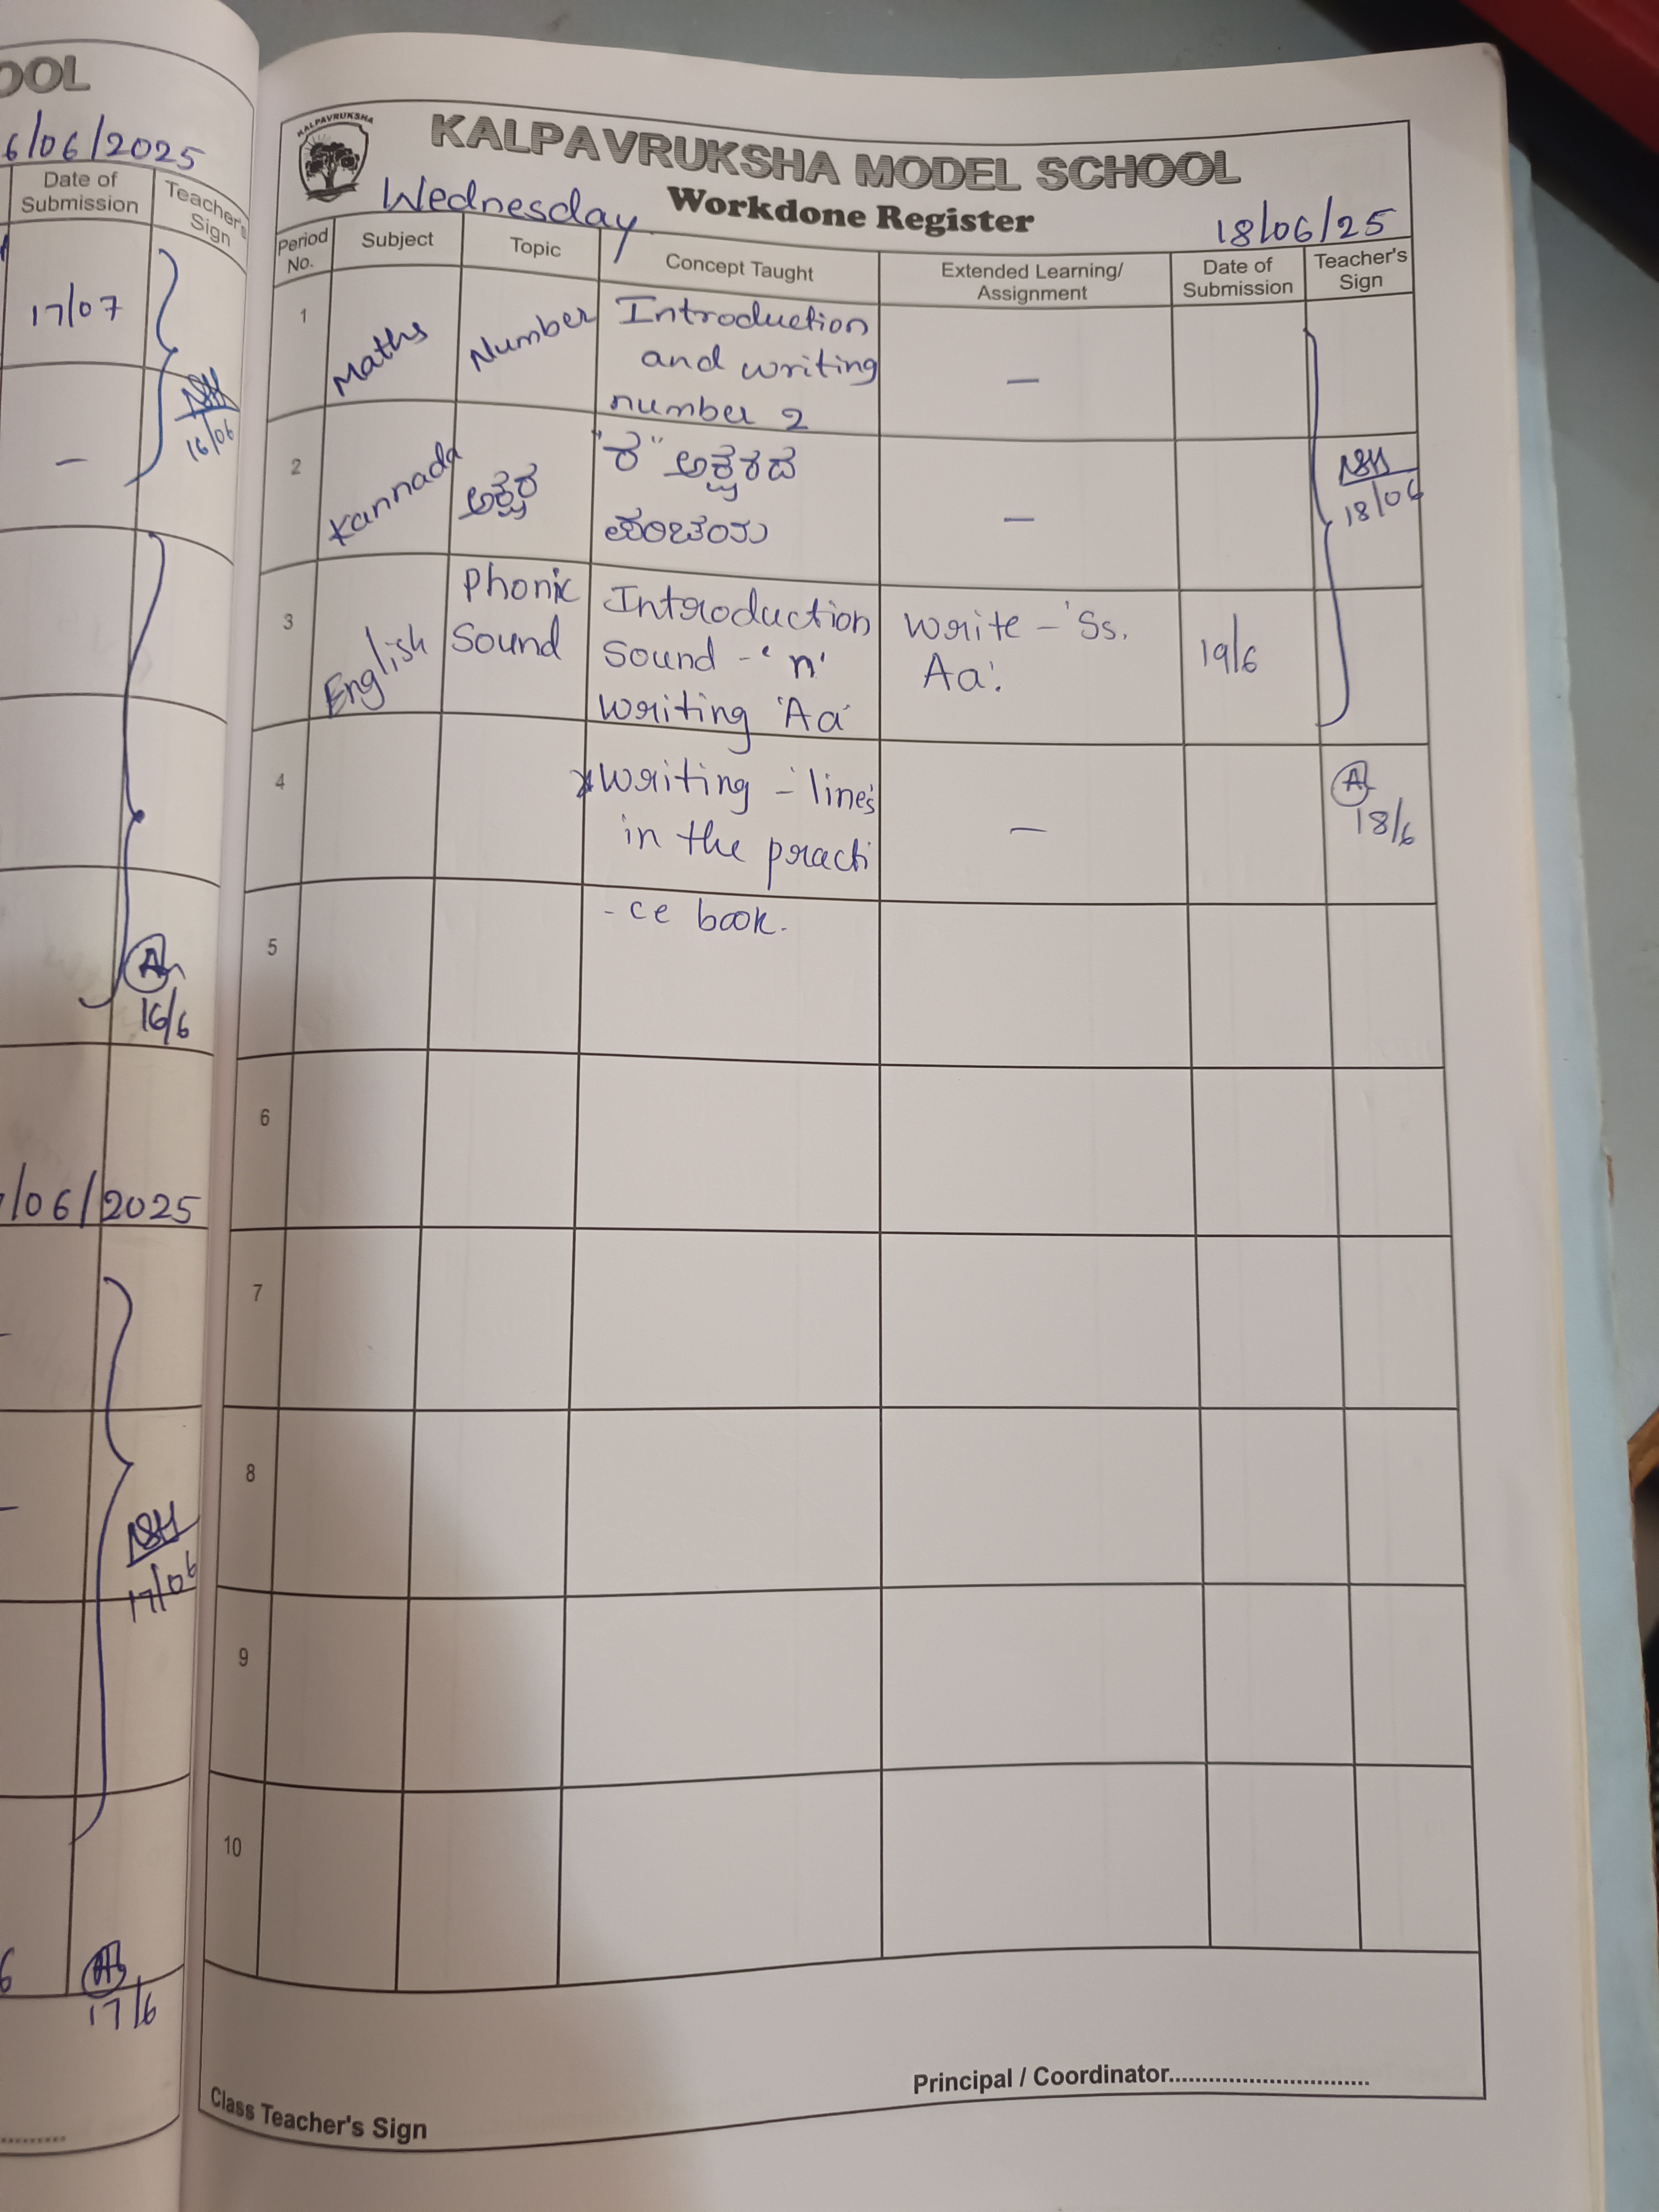 OOL
6/06/2025
Date of Submission
Teacher's Sign
17/07
16/06
—
16/6
/06/2025
17/06
17/6
KALPAVRUKSHA
KALPAVRUKSHA MODEL SCHOOL
Wednesday
Workdone Register
18/06/25
Period No. Subject Topic Concept Taught Extended Learning/ Assignment Date of Submission Teacher's Sign
1 Maths Number Introduction
and writing
number 2
—
2 Kannada ಅಕ್ಷರ "ಕ" ಅಕ್ಷರದ
ಪರಿಚಯ
—
18/06
3 English Phonic Sound
Introduction
Sound - 'n'
writing 'Aa'
Write - 'Ss.
Aa'.
19/6
4 *Writing - 'lines'
in the practi
- ce book.
—
18/6
5
6
7
8
9
10
Class Teacher's Sign
Principal / Coordinator..............................